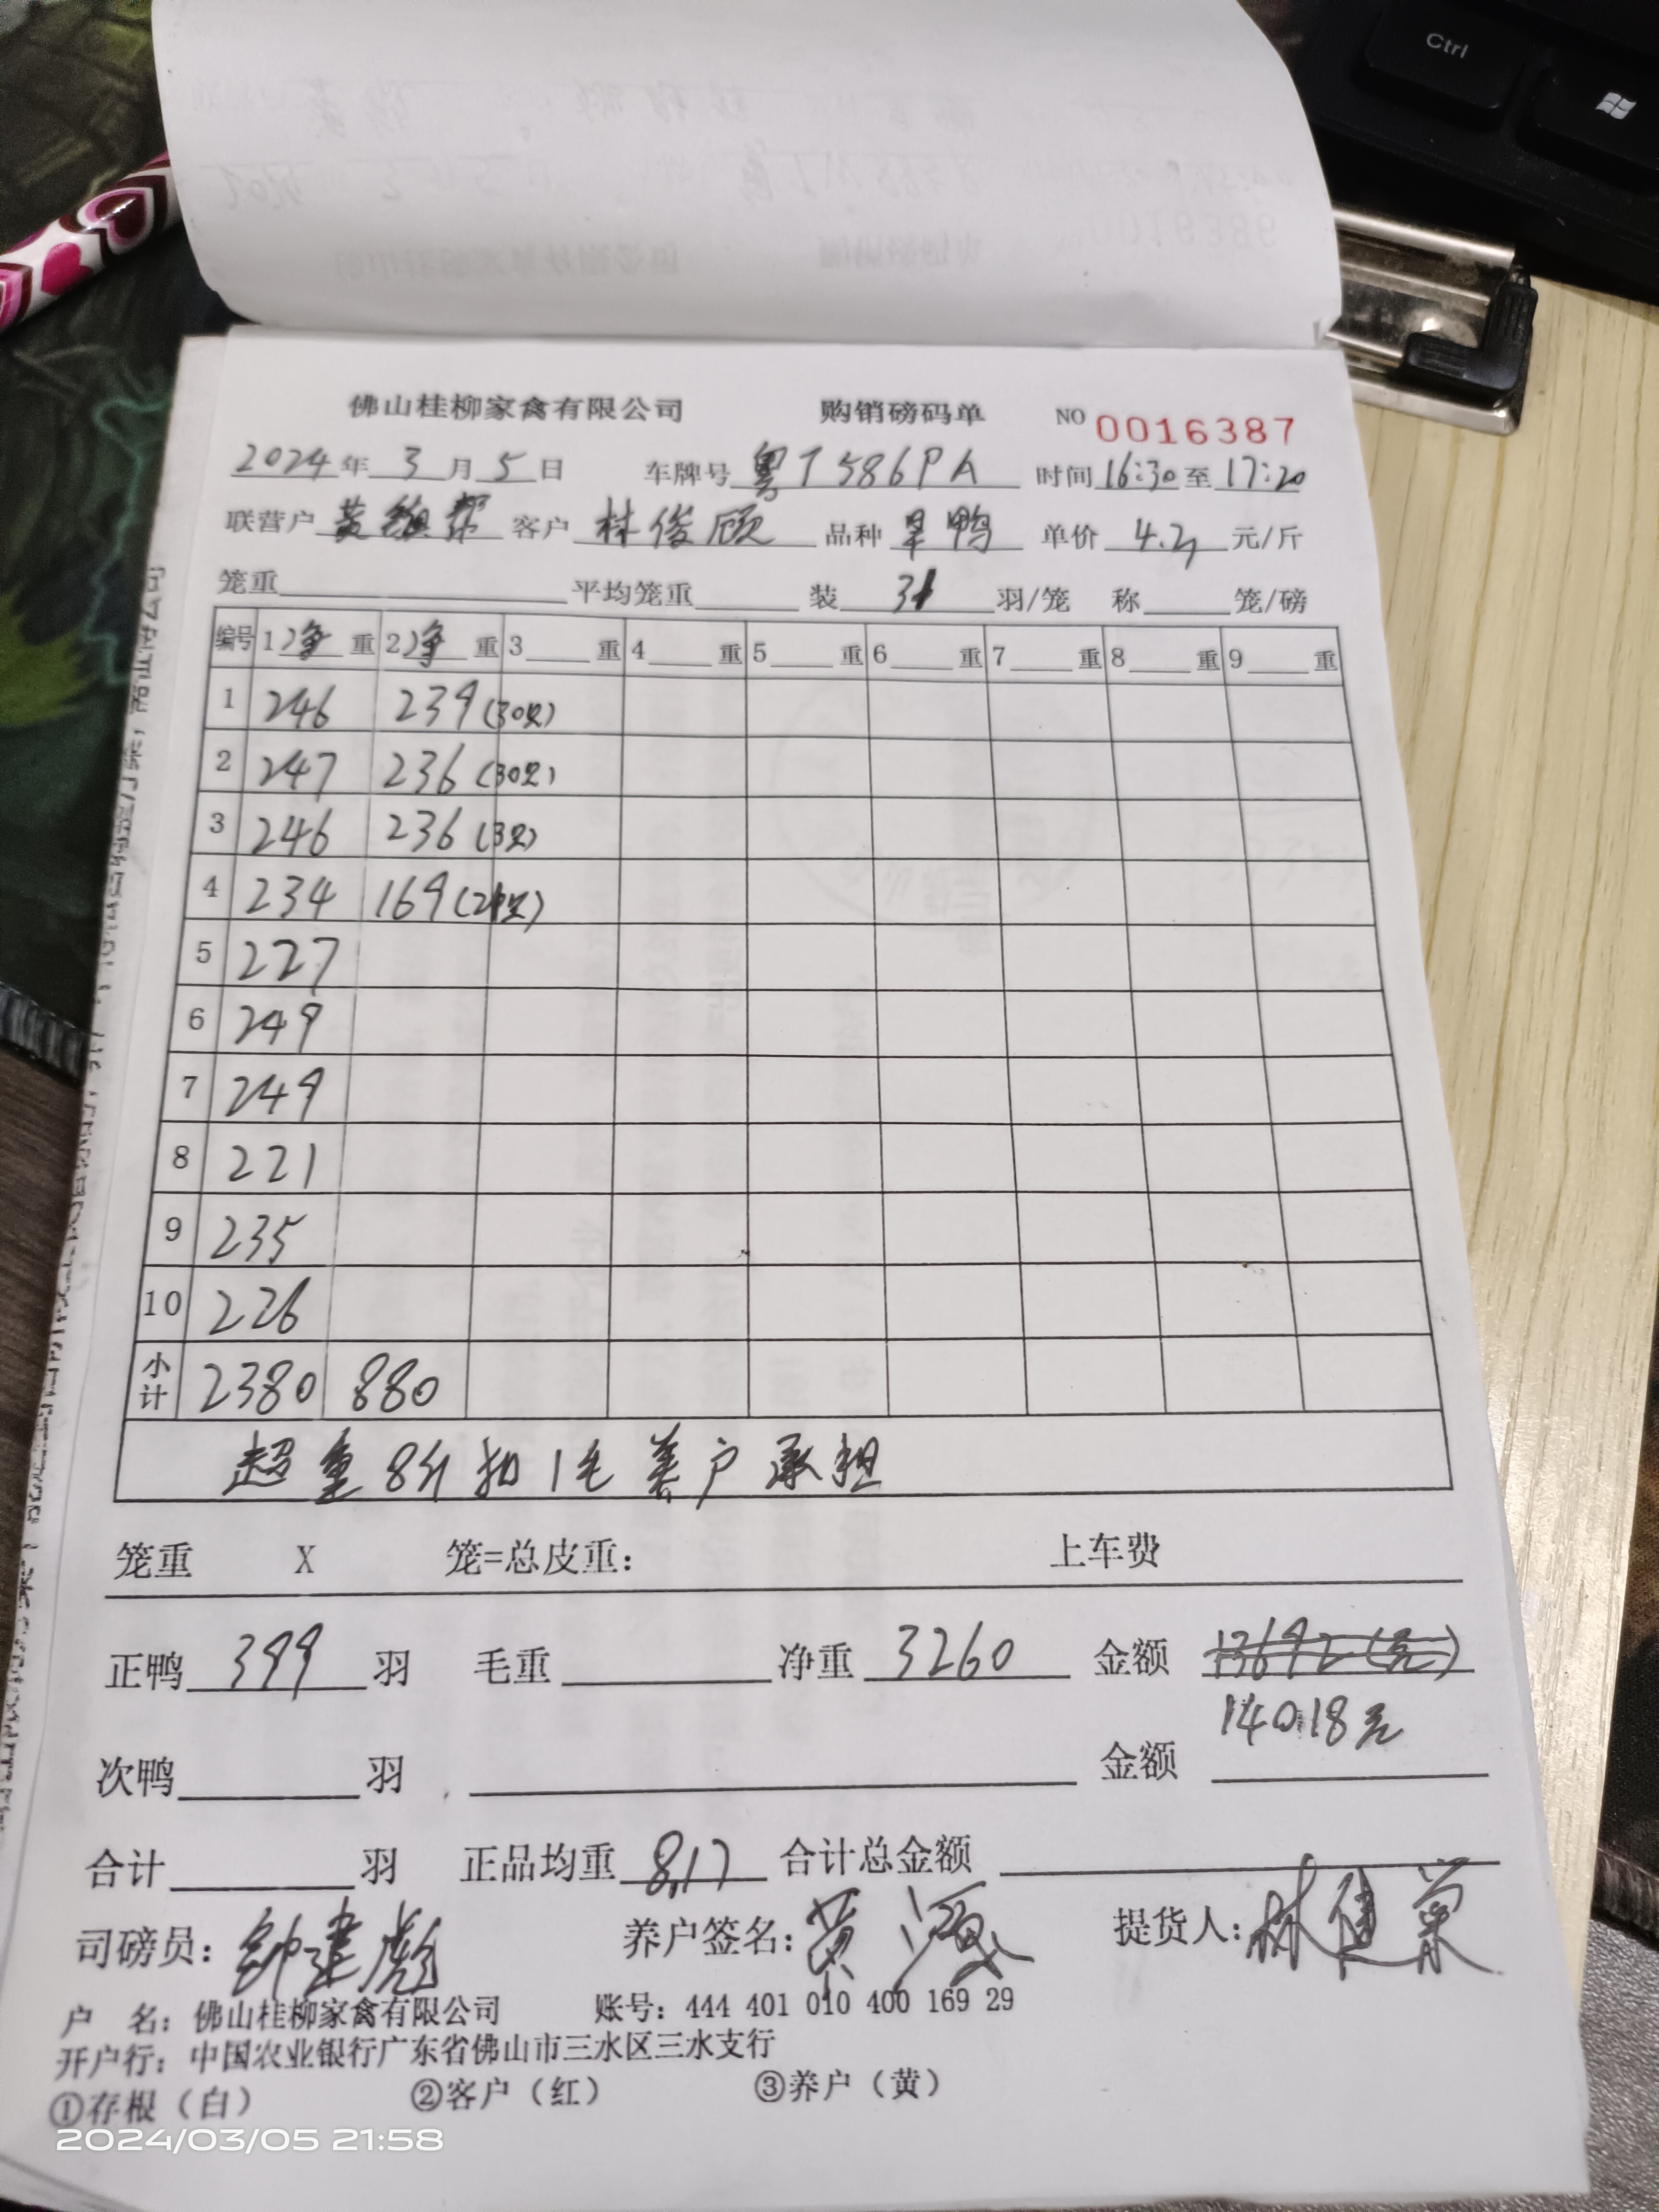 Ctrl
佛山桂柳家禽有限公司 购销磅码单 NO 0016387
2024年 3 月 5 日 车牌号 粤T586PA 时间 16:30 至 17:20
联营户 黄 客户 林俊 品种 旱鸭 单价 元/斤
笼重 平均笼重 装 31 羽/笼 称 笼/磅
编号 1 净 重 2 净 重 3 重 4 重 5 重 6 重 7 重 8 重 9 重
1 246 239 (30只)
2 247 236 (30只)
3 246 236
4 234 169
5 227
6 249
7 249
8 221
9 235
10 226
小计 2380 880
超重8斤扣1毛 养户承担
笼重 X 笼=总皮重: 上车费
正鸭 399 羽 毛重 净重 3260 金额 13692(元)
14018元
次鸭 羽 金额
合计 羽 正品均重 8.17 合计总金额
司磅员: 钟建彪 养户签名: 黄 提货人: 林
户 名: 佛山桂柳家禽有限公司 账号: 444 401 010 400 169 29
开户行: 中国农业银行广东省佛山市三水区三水支行
①存根（白） ②客户（红） ③养户（黄）
2024/03/05 21:58